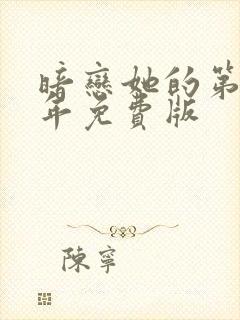 暗戀她的第
年免費版
陳寧